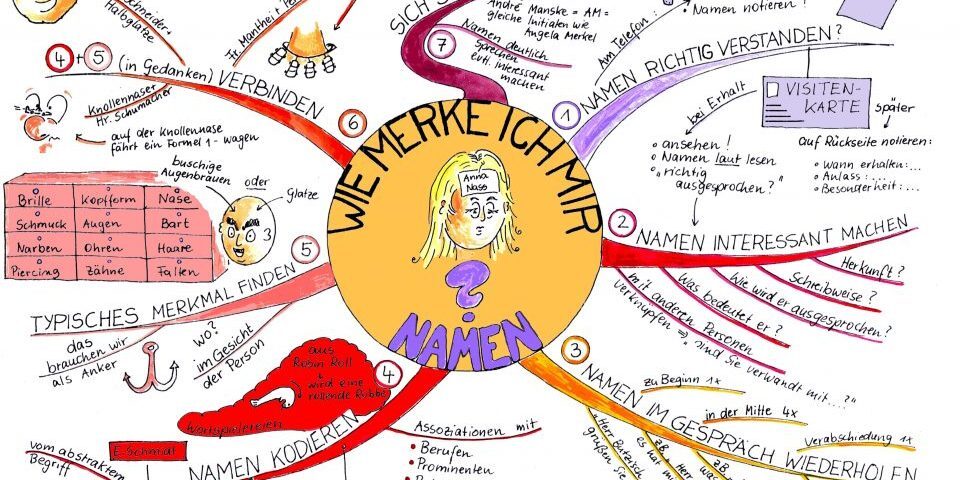 WIE MERKE ICH MIR
NAMEN
?
Anna
Nass
1
NAMEN RICHTIG VERSTANDEN?
Am Telefon:
Namen notieren!
bei Erhalt
VISITEN-
KARTE
• ansehen!
• Namen laut lesen
• "richtig
ausgesprochen?"
später
auf Rückseite notieren:
• Wann erhalten:...
• Anlass:...
• Besonderheit:...
2
NAMEN INTERESSANT MACHEN
Herkunft?
Schreibweise?
Wie wird er ausgesprochen?
Was bedeutet er?
mit anderen Personen
verknüpfen ⇒ "sind Sie verwandt mit...?"
3
NAMEN IM GESPRÄCH WIEDERHOLEN
zu Beginn 1x
in der Mitte 4x
Verabschiedung 1x
"Herr Butzisch
grüßen Sie
zB
es hat
Herr
zB
was
4
NAMEN KODIEREN
aus
Robin Roll
wird eine
rollende Robbe
Wortspielereien
E-Schmidt
vom abstrakten
Begriff
Assoziationen mit
• Berufen
• Prominenten
5
TYPISCHES MERKMAL FINDEN
das
brauchen wir
als Anker
WO?
im Gesicht
der Person
buschige
Augenbrauen
oder
Glatze
Brille Kopfform Nase
Schmuck Augen Bart
Narben Ohren Haare
Piercing Zähne Falten
6
4 + 5 (in Gedanken) VERBINDEN
Knollennase
Hr. Schumacher
auf der Knollennase
fährt ein Formel 1-Wagen
Schneider
Halbglatze
Fr. Mantheit
7
SICH
André Manske = AM =
gleiche Initialen wie
Angela Merkel
Namen deutlich
sprechen
evtl. interessant
machen